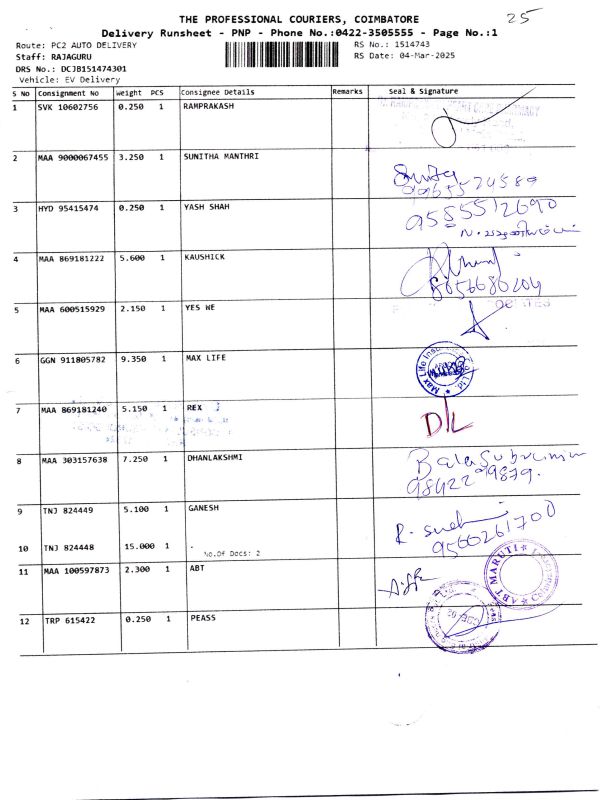 THE PROFESSIONAL COURIERS, COIMBATORE
25
Delivery Runsheet - PNP - Phone No.:0422-3505555 - Page No.:1
Route: PC2 AUTO DELIVERY
RS No.: 1514743
Staff: RAJAGURU
RS Date: 04-Mar-2025
DRS No.: DCJB151474301
Vehicle: EV Delivery
S No Consignment No Weight PCS Consignee Details Remarks Seal & Signature
1 SVK 10602756 0.250 1 RAMPRAKASH
2 MAA 9000067455 3.250 1 SUNITHA MANTHRI
3 HYD 95415474 0.250 1 YASH SHAH 9585512690
4 MAA 869181222 5.600 1 KAUSHICK 8056680204
5 MAA 600515929 2.150 1 YES WE
6 GGN 911805782 9.350 1 MAX LIFE Max Life
7 MAA 869181240 5.150 1 REX D/L
8 MAA 303157638 7.250 1 DHANLAKSHMI
9842299879.
9 TNJ 824449 5.100 1 GANESH
9566261700
10 TNJ 824448 15.000 1 .
No.Of Docs: 2
11 MAA 100597873 2.300 1 ABT ABT MARUTI
12 TRP 615422 0.250 1 PEASS